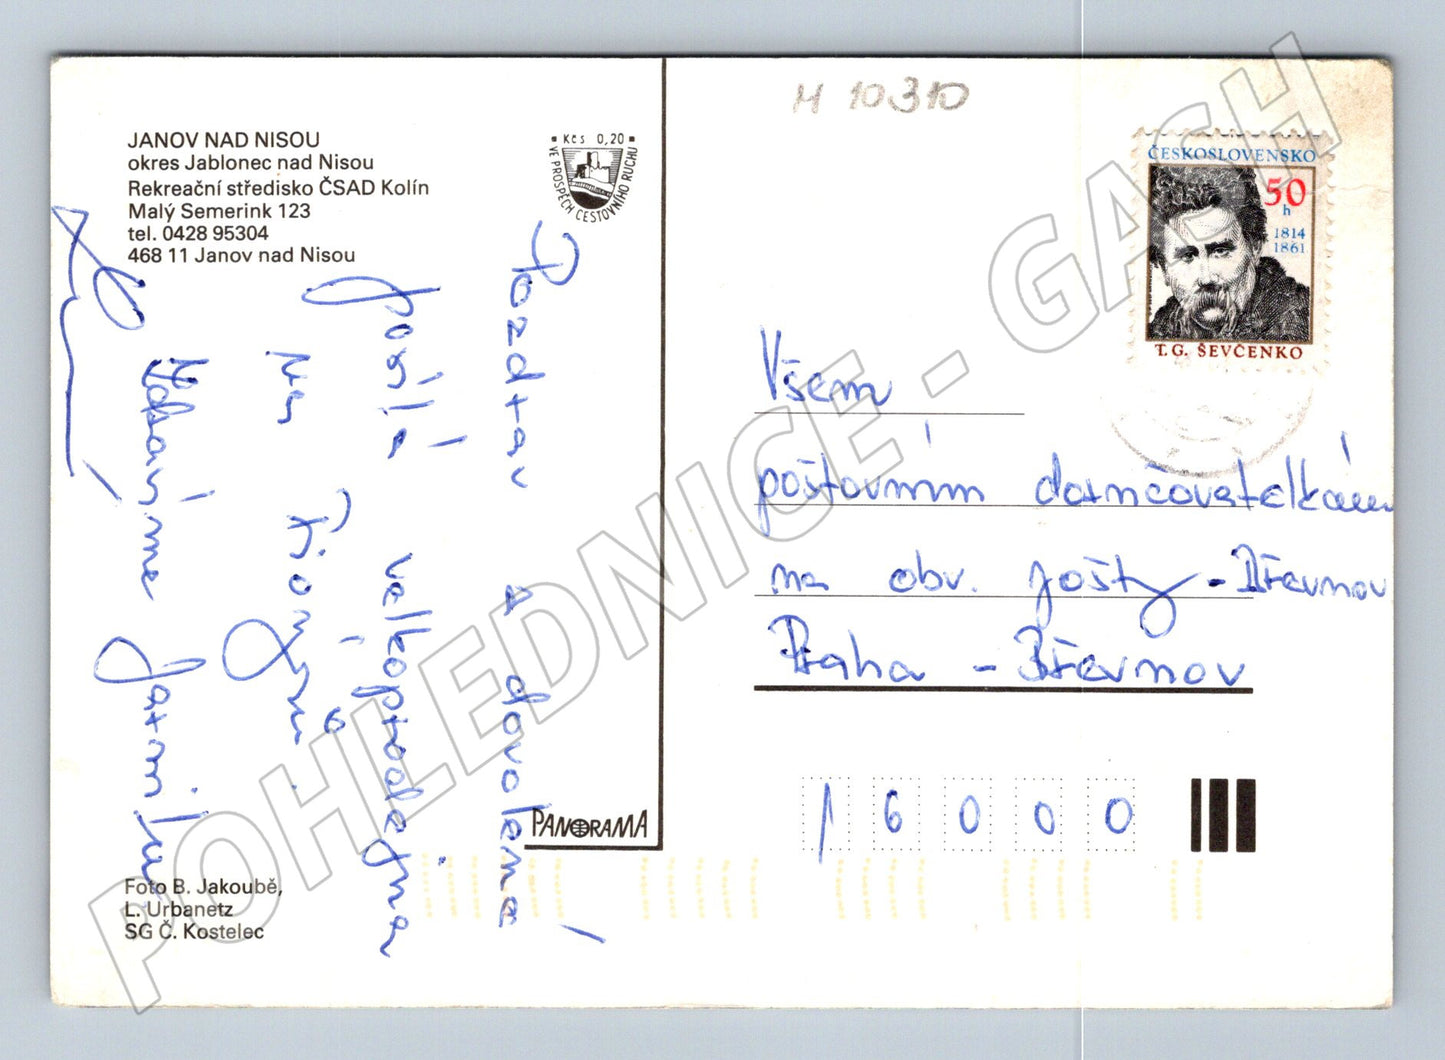 JANOV NAD NISOU
okres Jablonec nad Nisou
Rekreační středisko ČSAD Kolín
Malý Semerink 123
tel. 0428 95304
468 11 Janov nad Nisou
Kčs 0,20
VE PROSPĚCH CESTOVNÍHO RUCHU
Pozdrav z dovolené
posílá velkoprodejna
na
Jarmilu
PANORAMA
Foto B. Jakoubě,
L. Urbanetz
SG Č. Kostelec
M 10310
ČESKOSLOVENSKO
50
h
1814
1861
T. G. ŠEVČENKO
Všem
poštovním doručovatelkám
na obv. pošty - Břevnov
Praha - Břevnov
16000
POHLEDNICE - GASH